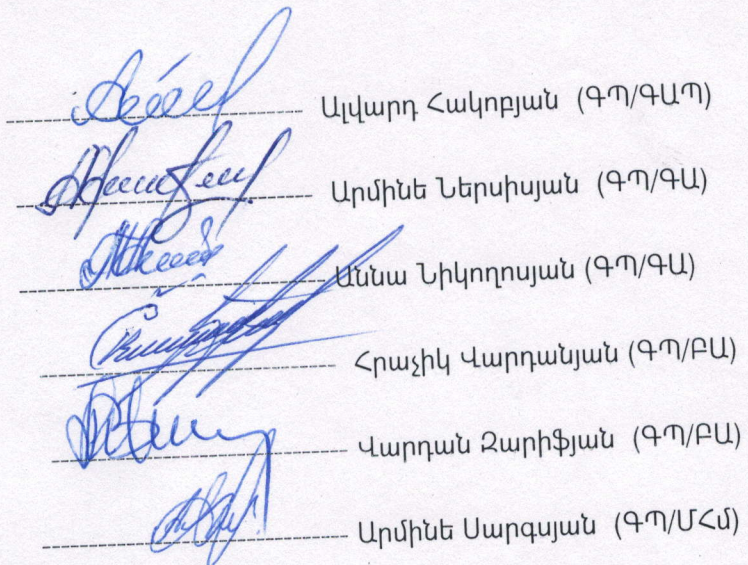 Ալվարդ Հակոբյան (ԳՊ/ԳԱՊ)
Արմինե Ներսիսյան (ԳՊ/ԳԱ)
Աննա Նիկողոսյան (ԳՊ/ԳԱ)
Հրաչիկ Վարդանյան (ԳՊ/ԲԱ)
Վարդան Զարիֆյան (ԳՊ/ԲԱ)
Արմինե Սարգսյան (ԳՊ/ՄՀմ)